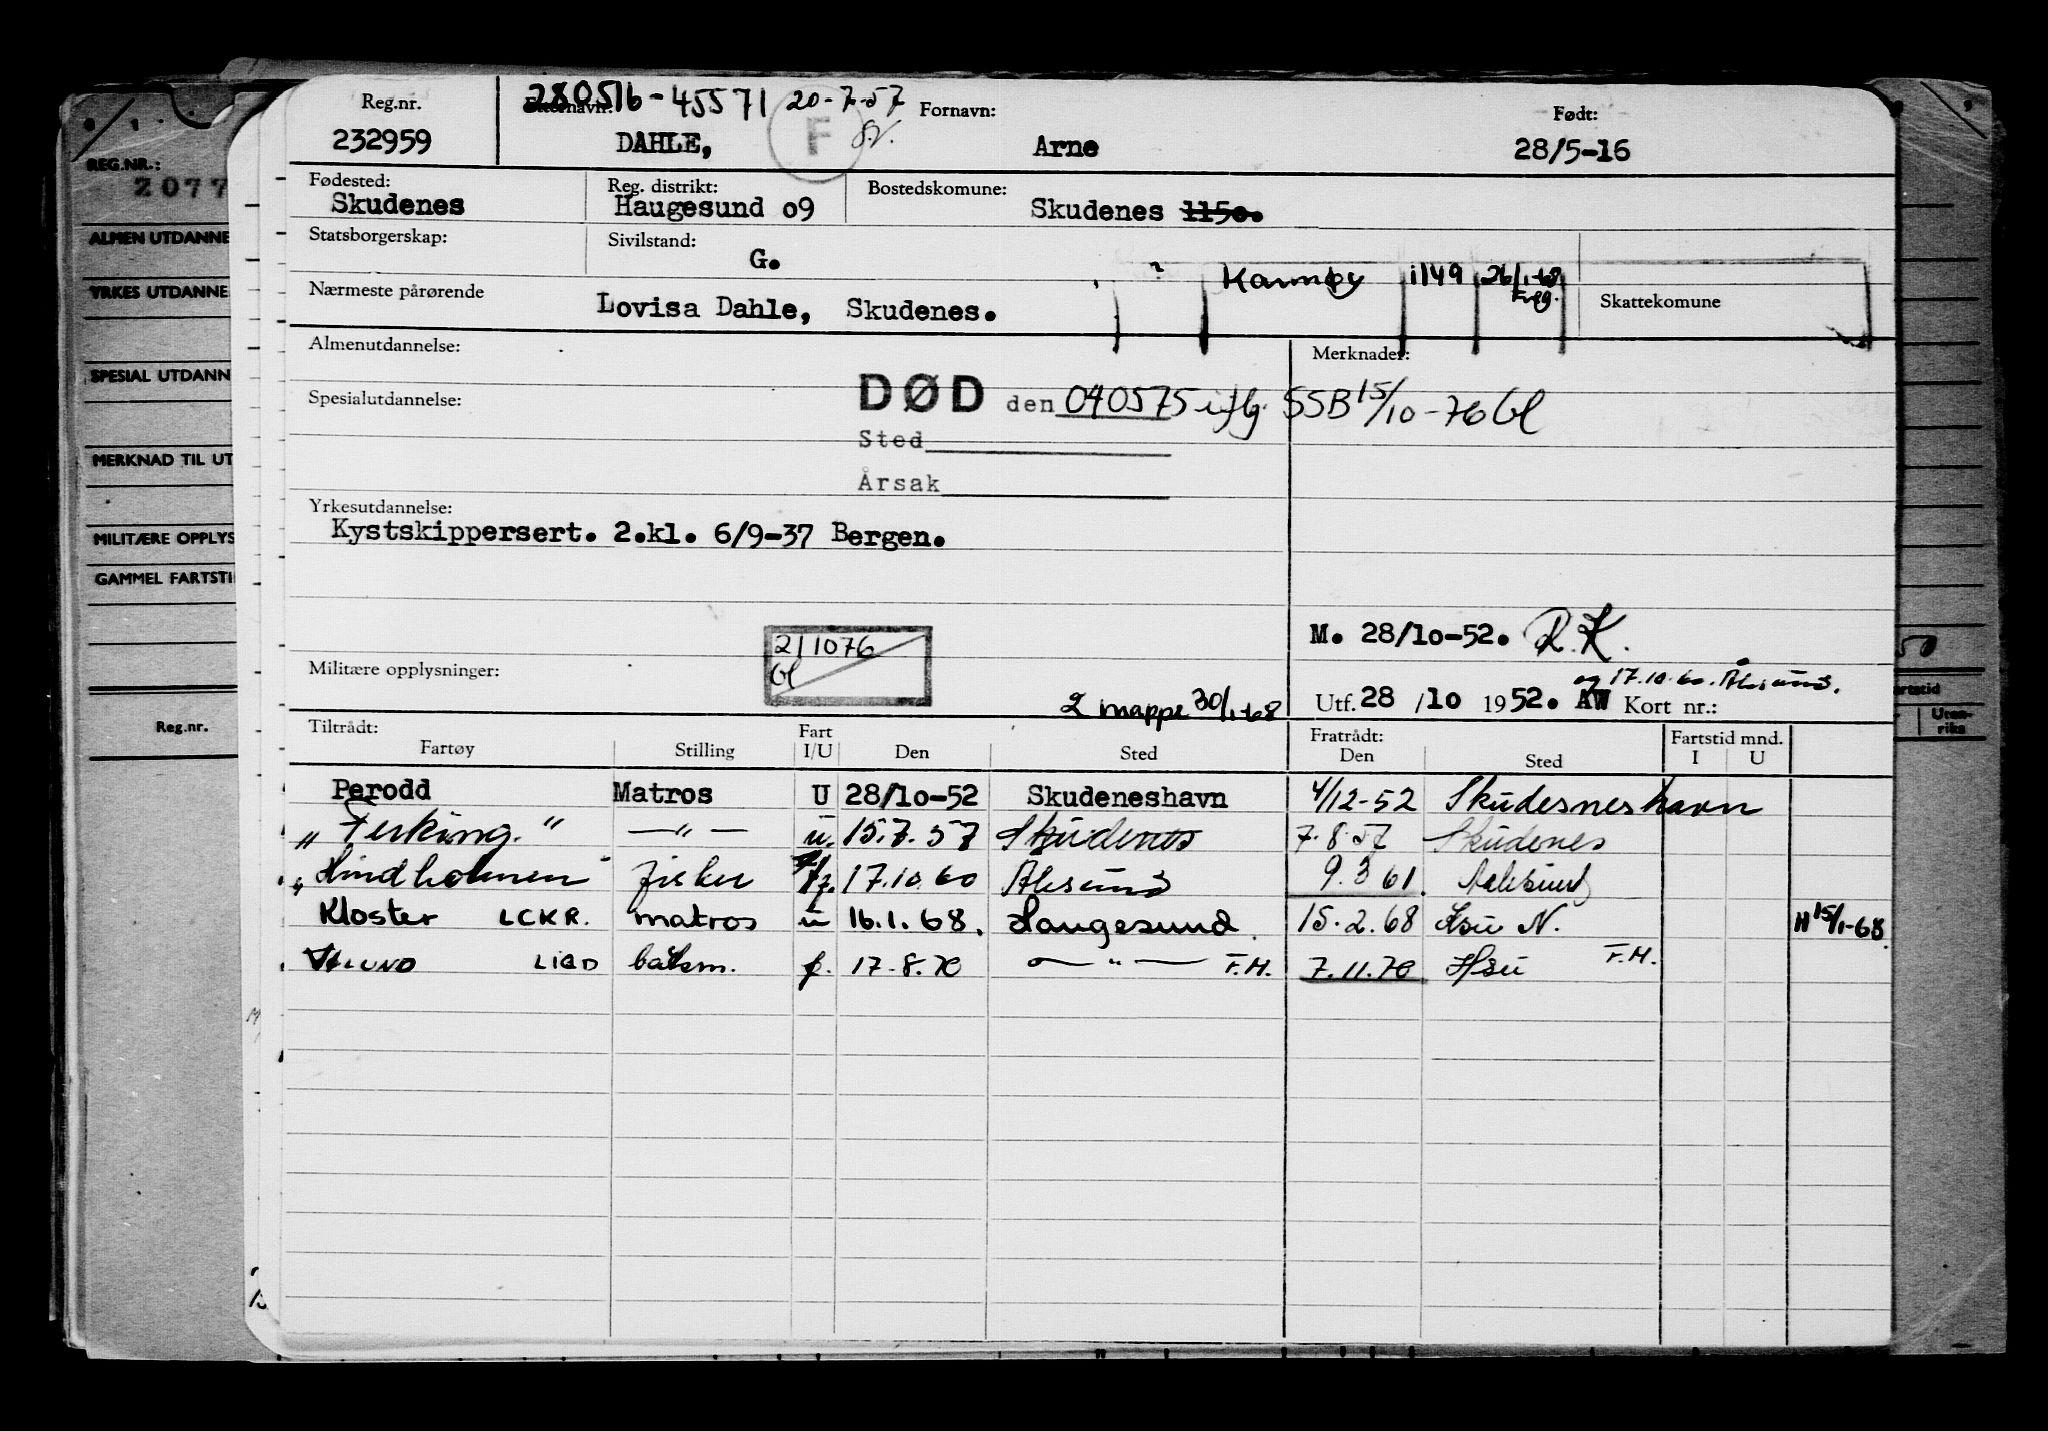 Reg.nr. 280516-45571 20-7-57 Fornavn: Født:
232959 DAHLE, F Arne 28/5-16
Fødested: Reg. distrikt: Bostedskomune:
Skudenes Haugesund o9 Skudenes 1150.
Statsborgerskap: Sivilstand:
G.
Karmøy 1149 26/1-68
Nærmeste pårørende Skattekomune
Lovisa Dahle, Skudenes.
Almenutdannelse: Merknader:
DØD den 040575 iflg. SSB 15/10-76 Gl
Spesialutdannelse:
Sted
Årsak
Yrkesutdannelse:
Kystskippersert. 2.kl. 6/9-37 Bergen.
211076
Gl
M. 28/10-52. R.K.
Militære opplysninger:
og 17.10.60. Ålesund.
2 mappe 30/1-68 Utf. 28 /10 1952. AW Kort nr.:
Tiltrådt: Fart Fratrådt: Fartstid mnd.
Fartøy Stilling I/U Den Sted Den Sted I U
Perodd Matros U 28/10-52 Skudeneshavn 4/12-52 Skudesneshavn
"Ferking." —"— u. 15.7.57 Skudenes 7.8.57 Skudenes
"Hindholmen" fisker 17.10.60 Ålesund 9.3.61. Aalesund
Kloster LCKR. matros u 16.1.68. Haugesund. 15.2.68 Hsu N. H 15/1-68.
LIBD båtsm. f. 17.8.70 —"— F.H. 7.11.70 Hsu F.H.
REG.NR.:
Z077
ALMEN UTDANNE
YRKES UTDANNE
SPESIAL UTDANN
MERKNAD TIL UT
MILITÆRE OPPLYS
GAMMEL FARTSTI
Reg.nr.
50
artstid
Uten-
riks